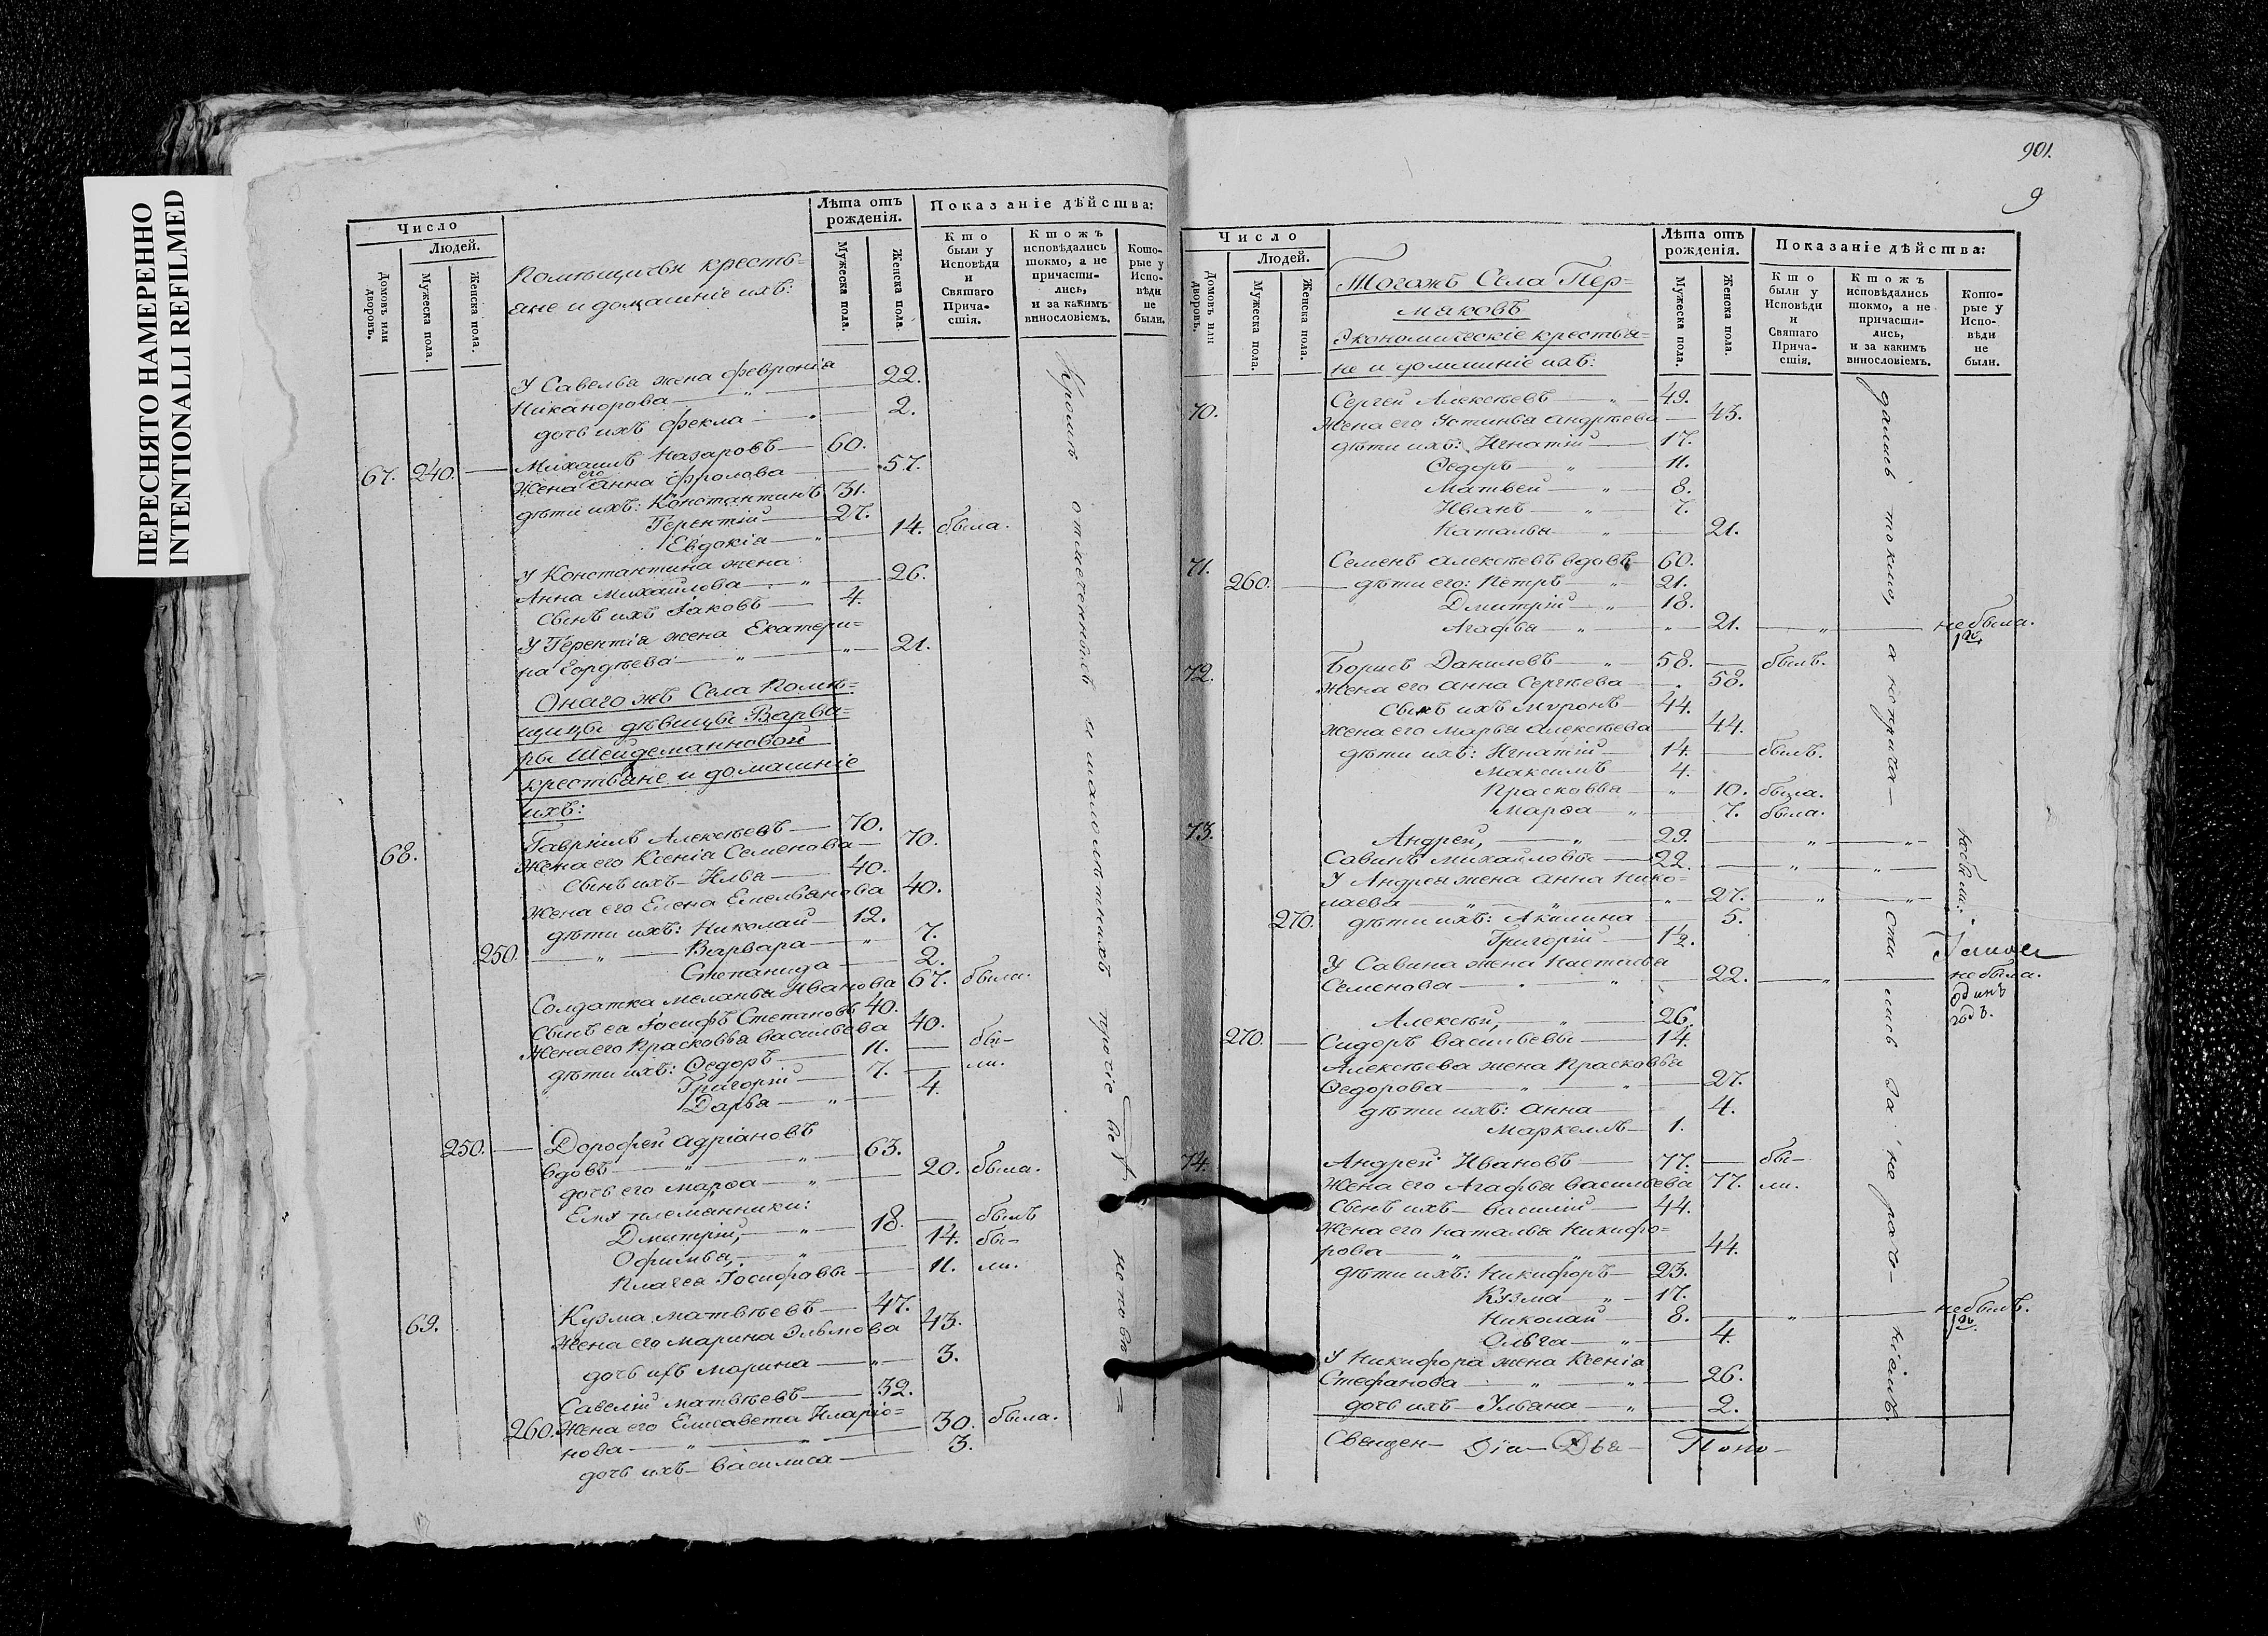 ПЕРЕСНЯТО НАМЕРЕННО
INTENTIONALLI REFILMED
Число
Людей.
Домовъ или дворовъ.
Мужеска пола.
Женска пола.
Помѣщичьи кресть=
яне и домашніе ихъ:
Лѣта отъ рожденія.
Мужеска пола.
Женска пола.
Показаніе дѣйства:
Кто были у Исповѣди и Святаго Причастія.
Ктожъ исповѣдались токмо, а не причастились, и за какимъ винословіемъ.
Которые у Исповѣди не были.
У Савелья жена Февронія
Никанорова — 22.
дочь ихъ Фекла — 2.
67. 240. — Михаилъ Назаровъ — 60.
Жена его Анна Фролова — 57.
дѣти ихъ: Константинъ 31.
Терентій — 27.
Евдокія — 14. была.
У Константина жена
Анна Михайлова — 26.
Сынъ ихъ Іаковъ — 4.
У Терентія жена Екатери=
на Гордѣева — 21.
Онаго жъ Села Помѣ=
щицы дѣвицы Варва=
ры Шейдеманновой
крестьяне и домашніе
ихъ:
68. Гавріилъ Алексѣевъ — 70.
Жена его Ксенія Семенова — 70.
Сынъ ихъ Илья — 40.
Жена его Елена Емельянова 40.
дѣти ихъ: Николай — 12.
250. Варвара — 7.
Степанида — 2.
Солдатка Меланья Иванова 67. была.
Сынъ ея Іосифъ Степановъ 40.
Жена его Прасковья Васильева 40.
дѣти ихъ: Ѳедоръ — 11. — бы-
Григорій — 7. — ли.
Дарья — 4.
250. — Дорофей Адріановъ
вдовъ — 63.
дочь его Марѳа — 20. была.
Ему племянники:
Дмитрій, — 18. — былъ
Офимья, — 14. бы-
Іосифовы — 11. ли.
69. Кузма Матвѣевъ — 47.
Жена его Марина 43.
дочь ихъ Марина — 3.
Савелій Матвѣевъ — 32.
260. Жена его Елисавета Иларіо=
нова — 30. была.
дочь ихъ Василиса — 3.
Кромѣ отмеченныхъ и малолѣтнихъ прочіе всѣ
901.
9
Число
Людей.
Домовъ или дворовъ.
Мужеска пола.
Женска пола.
Тогожъ Села Пер=
маковъ
Экономическіе крестья=
не и домашніе ихъ:
Лѣта отъ рожденія.
Мужеска пола.
Женска пола.
Показаніе дѣйства:
Кто были у Исповѣди и Святаго Причастія.
Ктожъ исповѣдались токмо, а не причастились, и за какимъ винословіемъ.
Которые у Исповѣди не были.
70. Сергей Алексѣевъ — 49.
Жена его Устинья Андрѣева — 43.
дѣти ихъ: Игнатій — 17.
Ѳедоръ — 11.
Матвей — 8.
Иванъ — 7.
Наталья — 21.
71. Семенъ Алексѣевъ вдовъ 60.
260. — дѣти его: Петръ — 21.
Дмитрій — 18.
Агафья — 21. — не была.
72. Борисъ Даниловъ — 58. — былъ.
Жена его Анна Сергѣева — 58.
Сынъ ихъ Миронъ — 44.
Жена его Марья Алексѣева — 44.
дѣти ихъ: Игнатій — 14. — былъ.
Максимъ — 4.
Прасковья — 10. была.
Марѳа — 7. была.
73. Андрей, — 29.
Савинъ Михайловы — 22.
У Андрея жена Анна Нико=
лаева — 27.
270. дѣти ихъ: Акилина — 5.
Григорій — 1½.
У Савина жена Настасья
Семенова — 22. — не была.
одинъ
годъ.
Алексѣй, — 26.
270. — Сидоръ Васильевы — 14.
Алексѣева жена Прасковья
Ѳедорова — 27.
дѣти ихъ: Анна — 4.
Маркеллъ — 1.
74. Андрей Ивановъ — 77. — бы-
Жена его Агафья Васильева 77. ли.
Сынъ ихъ Василій — 44.
Жена его Наталья Никифо=
рова — 44.
дѣти ихъ: Никифоръ — 23.
Кузма — 17.
Николай — 8. — не былъ.
Ольга — 4.
У Никифора жена Ксенія
Стефанова — 26.
дочь ихъ Ульяна — 2.
дались токмо, а не прича-
стились за не раче-
ніемъ.
не были.
Священ- Діа- Дья- Поно-